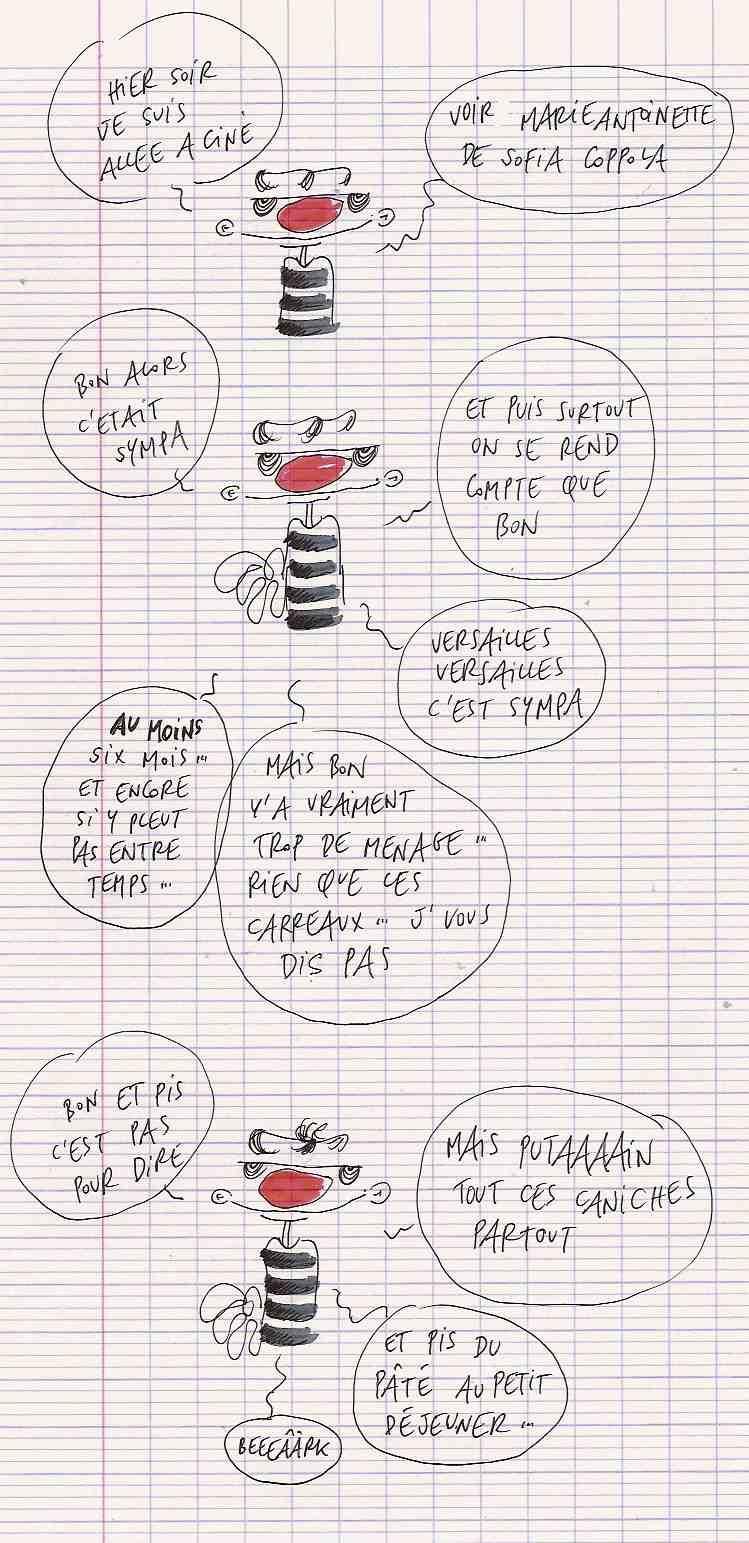 HIER SOIR
JE SUIS
ALLEE A CINÉ
VOIR MARIE ANTOINETTE
DE SOFIA COPPOLA
BON ALORS
C'ETAIT
SYMPA
ET PUIS SURTOUT
ON SE REND
COMPTE QUE
BON
VERSAILLES
VERSAILLES
C'EST SYMPA
MAIS BON
Y'A VRAIMENT
TROP DE MENAGE ...
RIEN QUE LES
CARREAUX ... J'VOUS
DIS PAS
AU MOINS
SIX MOIS ...
ET ENCORE
SI Y PLEUT
PAS ENTRE
TEMPS ...
BON ET PIS
C'EST PAS
POUR DIRE
MAIS PUTAAAAIN
TOUT CES CANICHES
PARTOUT
ET PIS DU
PÂTÉ AU PETIT
DÉJEUNER ...
BEEEÂÂRK